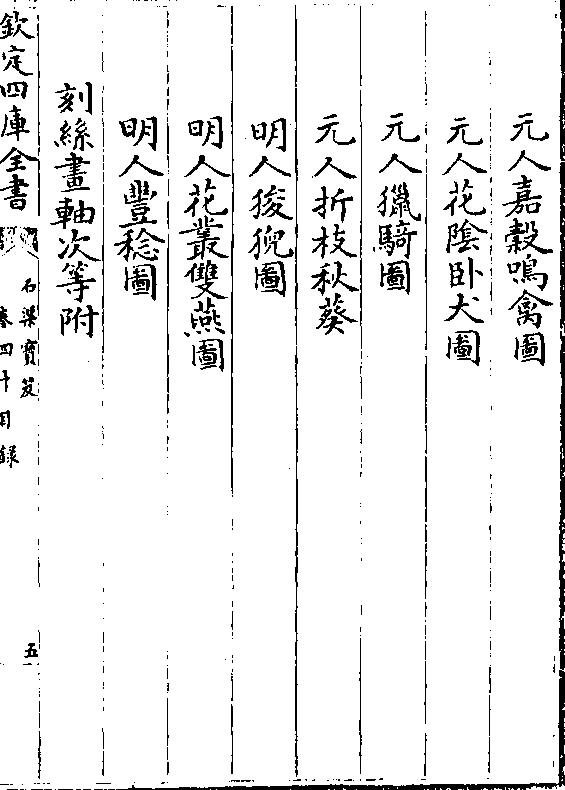 元人嘉穀鳴禽圖
元人花陰臥犬圖
元人獵騎圖
元人折枝秋葵
明人狻猊圖
明人花叢雙燕圖
明人豐稔圖
刻絲畫軸次等附
欽定四庫全書
石渠寶笈
卷四十目錄
五